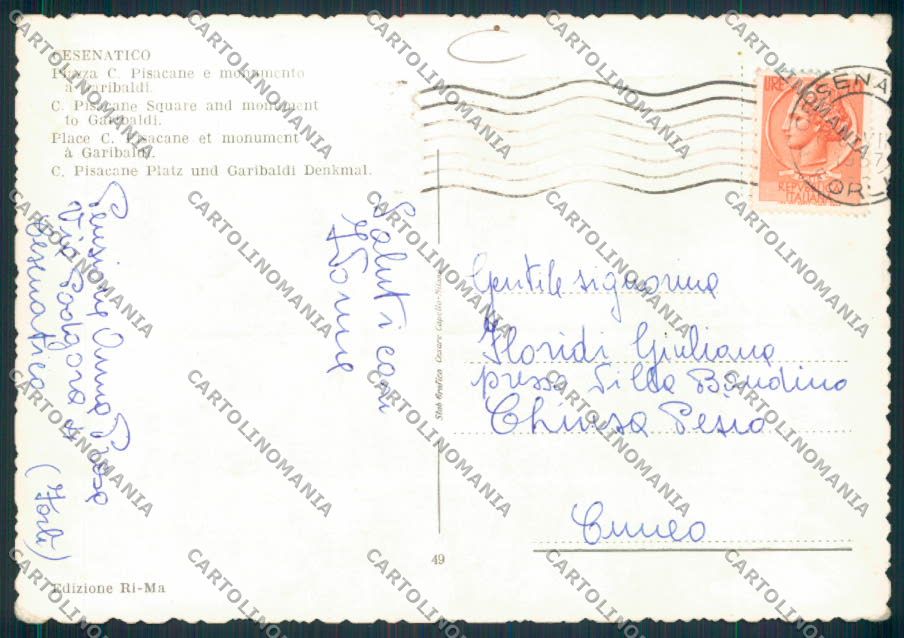 CESENATICO
Piazza C. Pisacane e monumento
a Garibaldi.
C. Pisacane Square and monument
to Garibaldi.
Place C. Pisacane et monument
à Garibaldi.
C. Pisacane Platz und Garibaldi Denkmal.
Saluti cari
Ivonne
Pensione Anna Rosa
Via Podgora
Cesenatico
(Forlì)
Edizione Ri-Ma
49
Stab Grafico Cesare Capello-Milano
LIRE
REPVBBLICA
ITALIANA
Gentile signorina
Floridi Giuliana
presso Villa Bandino
Chiusa Pesio
Cuneo
CARTOLINOMANIA